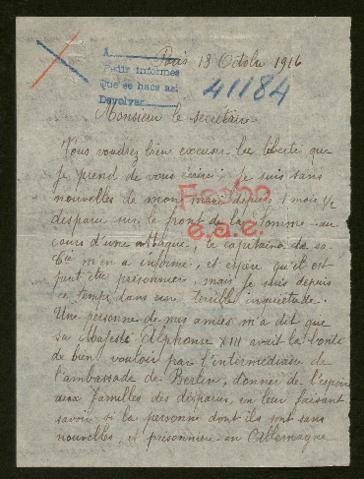 Paris 18 Octobre 1916
A
Pedir informes
que se hace así
Devolver
41184
Monsieur le secrétaire
Vous voudrez bien excuser la liberté que
je prend de vous écrire. je suis sans
nouvelles de mon mari depuis 1 mois,
disparu sur le front de la Somme au
cours d'une attaque, le capitaine de sa
Cie m'en a informé, et espère qu'il est
peut être prisonnier, mais je suis depuis
ce temps dans une terrible inquiétude.
Une personne de mes amies m'a dit que
Sa Majesté Alphonse XIII avait la bonté
de bien vouloir par l'intermédiaire de
l'ambassade de Berlin, donner de l'espoir
aux familles des disparus, en leur faisant
savoir si la personne dont ils sont sans
nouvelles, est prisonnière en Allemagne
Fecho
e.a.e.